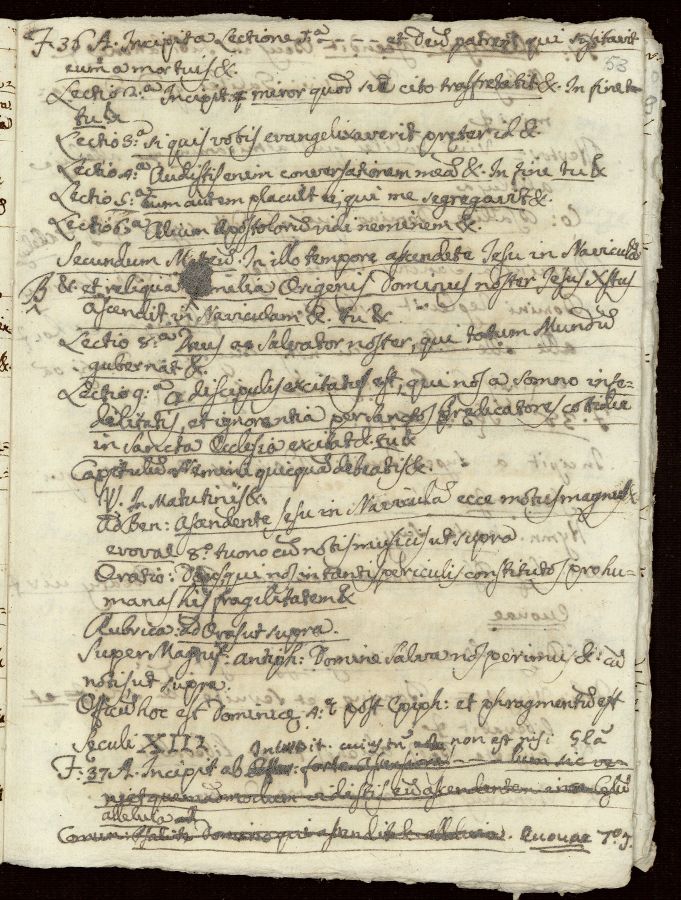 F. 36 A. Incipit a Lectione 1.ª - - - - et Deū patrem qui suscitavit
53
eum a mortuis &.
Lectio 2.ª Incipit miror quod sic cito trasferebit &. In fine tu
tu &
Lectio 3.ª si quis vobis evangelizaverit preter id &.
Lectio 4.ª Audistis enim conversationem meā &. In fine tu &
Lectio 5.ª cum autem placuit ei, qui me segregavit &.
Lectio 6.ª Alium Apostolorū vidi neminem &.
Secundum Mateū. In illo tempore ascendēte Jesu in Naviculā
& et reliqua omelia Origenis Dominus noster Jesus Xstus
B
ascendit in Naviculam &. tu &
Lectio 8.ª Deus ac Salvator noster, qui totum Mundū
gubernat &.
Lectio 9.ª A discipulis excitatus est, qui nos a somno infi=
delitatis, et ignorentia per sanctos Predicatores cotidie
in sancta Ecclesia excitat &. tu &
Capitulū nemini quicquā debeatis &
V. In Matutinis &.
Ad Ben: Ascendente Jesu in Naviculā ecce motus magnus &
evovae 8.º tuono cū notis musicis ut supra
Oratio: Deus qui nos in tantis periculis constitutos pro hu=
mana scis fragilitatem &
Rubrica: ad Oras ut supra.
Super Magnif: antiph: Domine salva nos perimus &: cū
notis ut supra.
Officiū hoc est Dominice 4.ª post Epiph: et phragmentū est
seculi XIII
non est nisi
F. 37 A. Incipit ab forte Ascensione - - lum sic ve=
niet quemadmodum vidistis eū ascendentem in Celū
alleluia
Comm: Psalite Domino qui ascendit & alleluia. Euouae 7.º